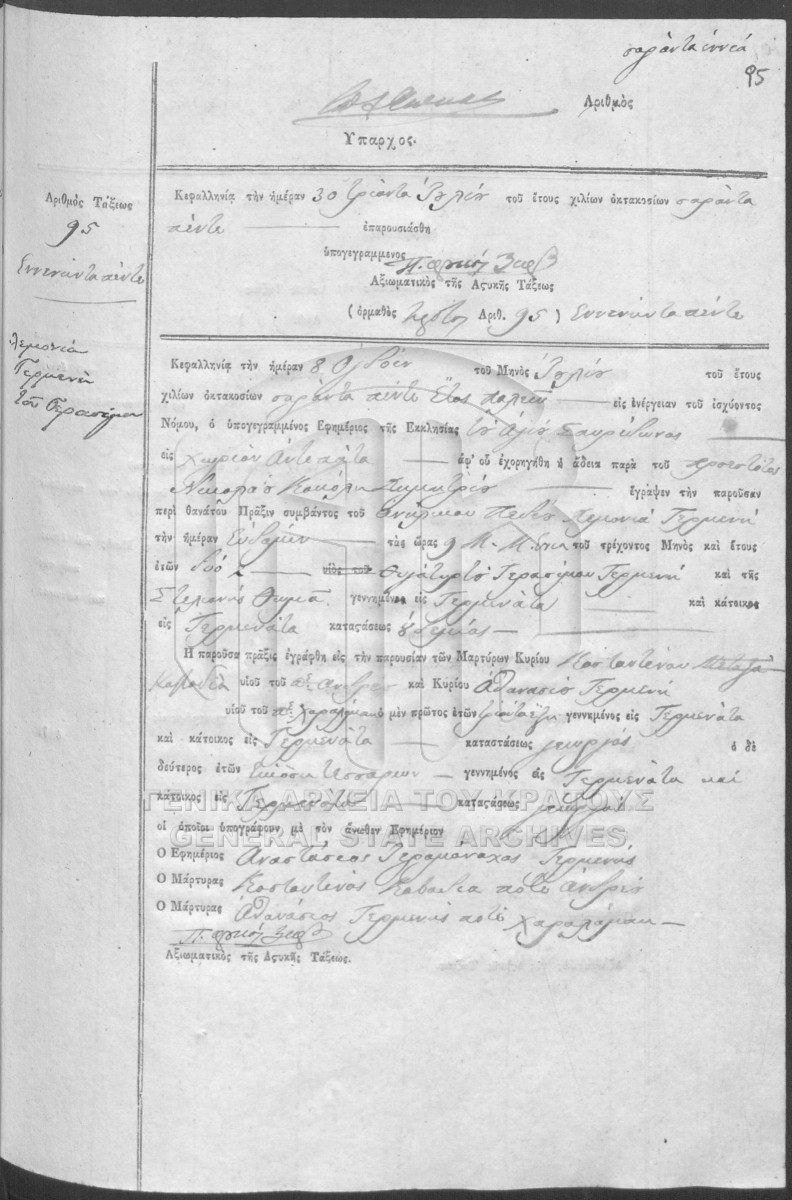 σαράντα εννέα
95
Αριθμὸς
Υπαρχος.
Αριθμὸς Τάξεως
95
Εννενῆντα πέντε
Λεμονιὰ
Γερμενῆ
τοῦ Γερασίμου
Κεφαλληνίᾳ τὴν ἡμέραν 30 τριάντα Ἰουλίου τοῦ ἔτους χιλίων ὀκτακοσίων σαράντα
πέντε ἐπαρουσιάσθη
ὑπογεγραμμενος
Αξιωματικὸς τῆς Αςυκῆς Τάξεως
(ὁρμαθὸς Αριθ. 95) Εννενῆντα πέντε
Κεφαλληνίᾳ τὴν ἡμέραν 8 Οκτὼ τοῦ Μηνὸς Ἰουλίου τοῦ ἔτους
χιλίων ὀκτακοσίων σαράντα πέντε Ἔτος παλαιὸν εἰς ἐνέργειαν τοῦ ἰσχύοντος
Νόμου, ὁ ὑπογεγραμμένος Εφημέριος τῆς Εκκλησίας τοῦ Ἁγίου Σπυρίδωνος
εἰς χωρίον ἀφ' οὗ ἐχορηγήθη ἡ ἄδεια παρὰ τοῦ προεστότος
Νικολάου ἔγραψεν τὴν παροῦσαν
περὶ θανάτου Πράξιν συμβάντος τοῦ ἀνηλίκου Πεδίου Λεμονιὰ Γερμενῆ
τὴν ἡμέραν Εὐδόμην τὰς ὥρας 9 Μ.Μ. τοῦ τρέχοντος Μηνὸς καὶ ἔτους
ἐτῶν δυό 2 υἱὸς τοῦ Θυγάτηρ τοῦ Γερασίμου Γερμενῆ καὶ τῆς
Στελιανῆς Θωμᾶ. γεννημένος εἰς Γερμενάτα καὶ κάτοικος
εἰς Γερμενάτα κατασάσεως οὐδεμίας
Η παροῦσα πρᾶξις ἐγράφθη εἰς τὴν παρουσίαν τῶν Μαρτύρων Κυρίου Κοσταντίνου
Καβαδία υἱοῦ τοῦ ποτὲ Ανδρέου καὶ Κυρίου Αθανασίου Γερμενῆ
υἱοῦ τοῦ ποτὲ Χαραλάμπου ὁ μὲν πρῶτος ἐτῶν τριάντα ἕξη γεννημένος εἰς Γερμενάτα
καὶ κάτοικος εἰς Γερμενάτα καταστάσεως γεωργὸς ὁ δὲ
δεύτερος ἐτῶν εἴκοσι τεσσάρων γεννημένος εἰς Γερμενάτα καὶ
κάτοικος εἰς Γερμενάτα κατασάσεως γεωργὸς
οἱ ὁποῖοι ὑπογράφουν μὲ τὸν ἄνωθεν Εφημέριον
Ο Εφημέριος Αναστάσιος Ιερομόναχος Γερμενῆς
Ο Μάρτυρας Κοσταντῖνος Καβαδία ποτὲ Ανδρέου
Ο Μάρτυρας Αθανάσιος Γερμενῆς ποτὲ Χαραλάμπου
Αξιωματικὸς τῆς Αςυκῆς Τάξεως.
ΓΕΝΙΚΑ ΑΡΧΕΙΑ ΤΟΥ ΚΡΑΤΟΥΣ
GENERAL STATE ARCHIVES